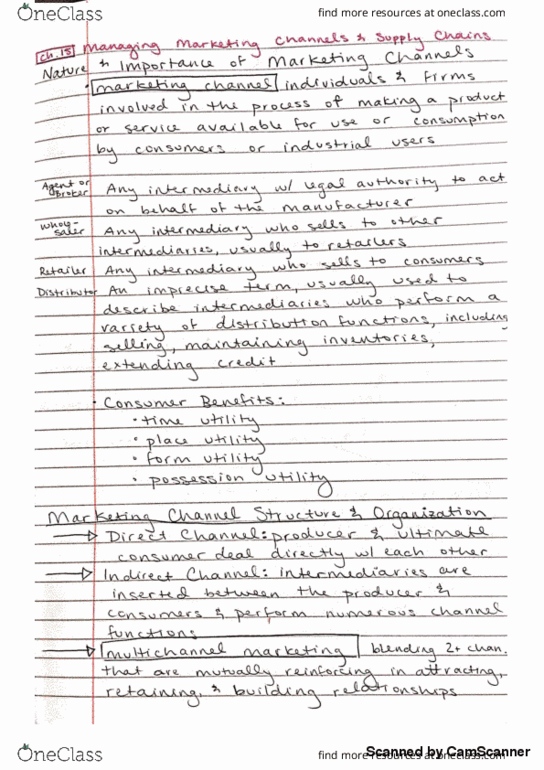 OneClass
find more resources at oneclass.com
Ch. 15 Managing Marketing Channels & Supply Chains
Nature & Importance of Marketing Channels
· marketing channel individuals & firms
involved in the process of making a product
or service available for use or consumption
by consumers or industrial users
Agent or Broker Any intermediary w/ legal authority to act
on behalf of the manufacturer
Whole-saler Any intermediary who sells to other
intermediaries, usually to retailers
Retailer Any intermediary who sells to consumers
Distributor An imprecise term, usually used to
describe intermediaries who perform a
variety of distribution functions, including
selling, maintaining inventories,
extending credit
· Consumer Benefits:
· time utility
· place utility
· form utility
· possession utility
Marketing Channel Structure & Organization
→ Direct Channel: producer & ultimate
consumer deal directly w/ each other
→ Indirect Channel: intermediaries are
inserted between the producer &
consumers & perform numerous channel
functions
→ multichannel marketing blending 2+ chan.
that are mutually reinforcing in attracting,
retaining, & building relationships
Scanned by CamScanner
OneClass
find more resources at oneclass.com